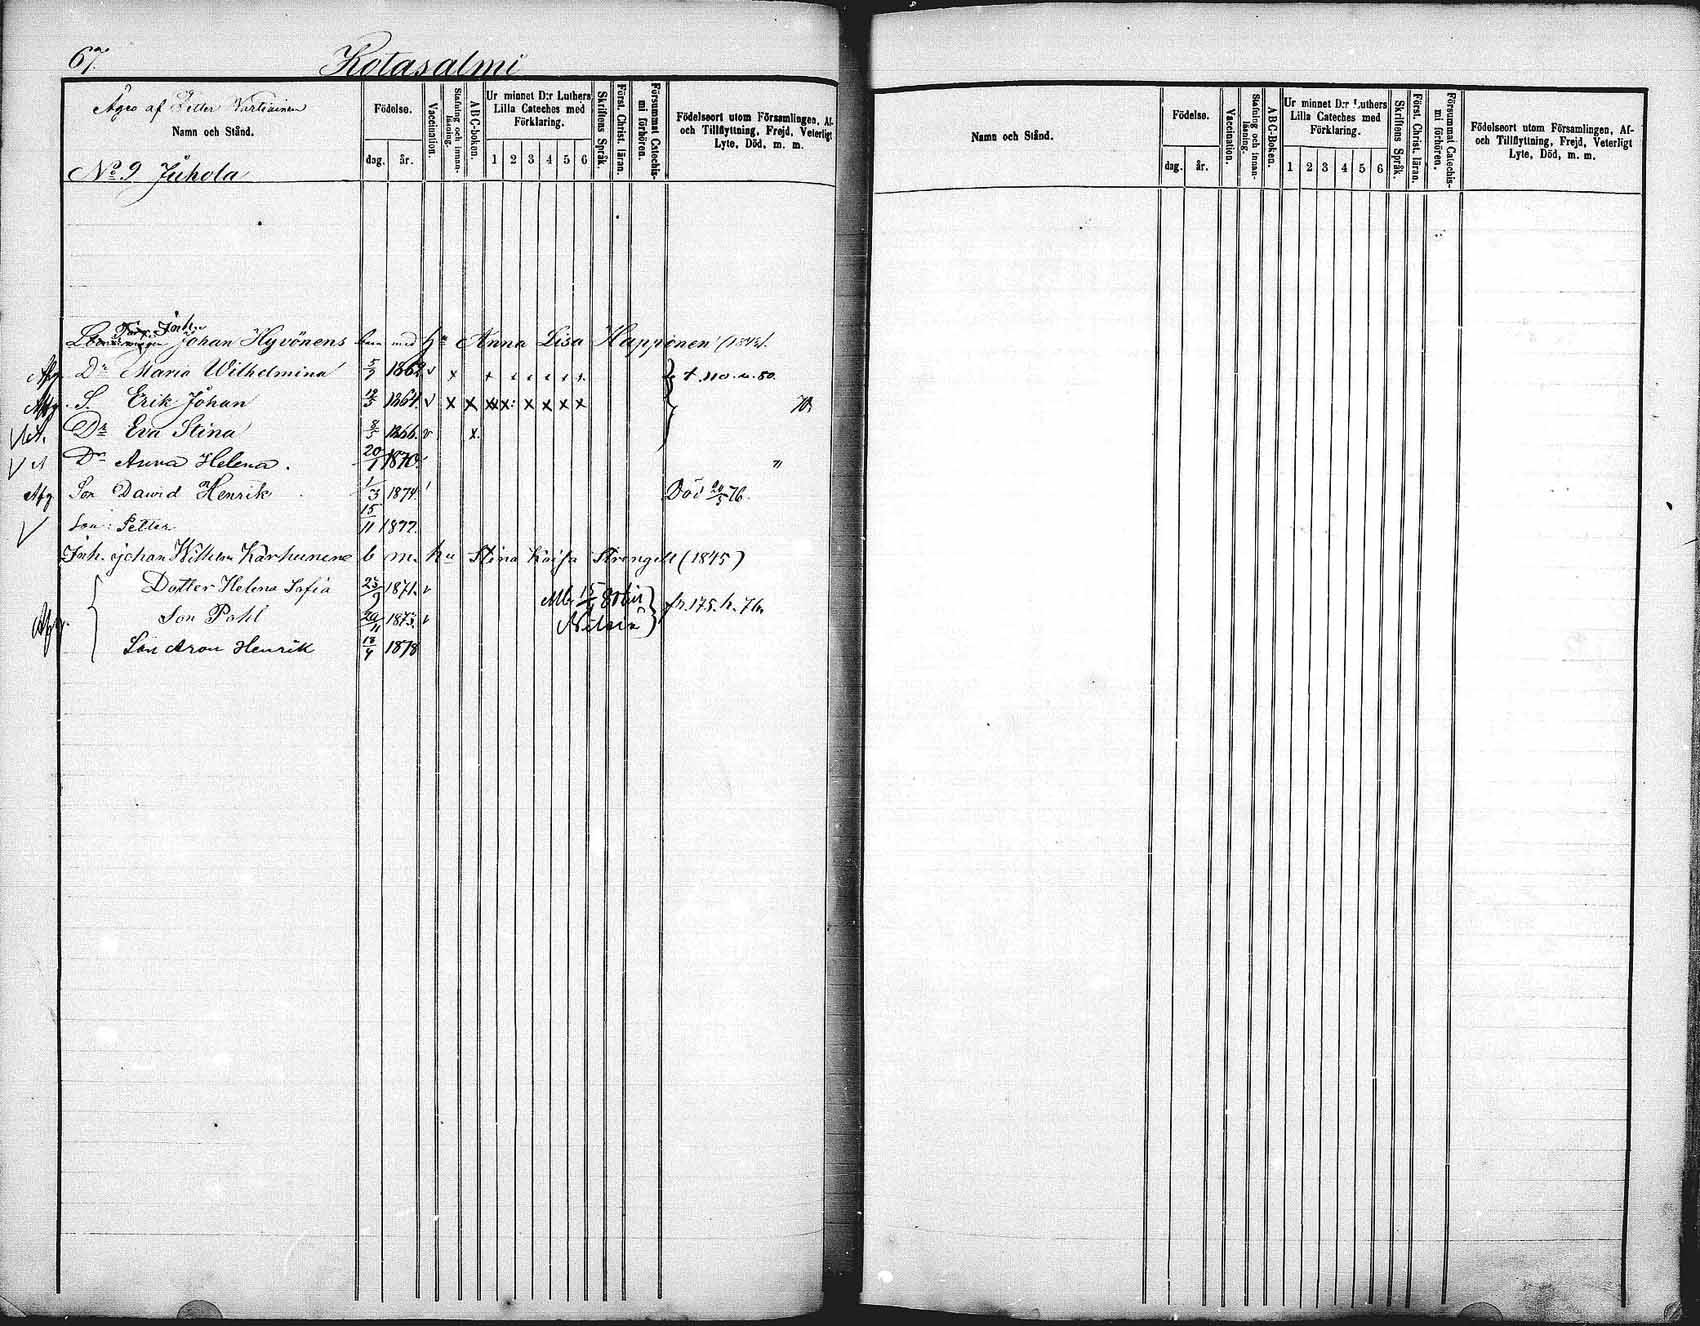 67.
Kotasalmi
Äges af Petter Vartiainen
Namn och Stånd.
No 9 Juhola
Födelse.
dag. år.
Vaccination.
Stafning och innanläsning.
ABC-boken.
Ur minnet D:r Luthers Lilla Cateches med Förklaring.
1 2 3 4 5 6
Skriftens Språk.
Först. Christ. läran.
Försummat Catechismi förhören.
Födelseort utom Församlingen, Af- och Tillflyttning, Frejd, Veterligt Lyte, Död, m. m.
Inh. Johan Hyvönens barn med h:u Anna Lisa Happonen
Afg. Dr Maria Wilhelmina 5/7 1862 v x
Afg. S. Erik Johan 1864. v x x x x x x x
Dr Eva Stina 8/5 1866. v x.
Dr Anna Helena. 20/1 1870
Afg Son Dawid Henrik 1/3 1874 Död 76.
Son: Petter 15/11 1877.
Inh. Johan Wilhelm Karhunens b m. hu Stina Kaisa Strengell (1845)
Dotter Helena Sofia 1871. v
Son Pohl 20/11 1873. v fr. 175. h. 76.
Son Aron Henrik 1878
Namn och Stånd.
Födelse.
dag. år.
Vaccination.
Stafning och innanläsning.
ABC-Boken.
Ur minnet D:r Luthers Lilla Cateches med Förklaring.
1 2 3 4 5 6
Skriftens Språk.
Först. Christ. läran.
Försummat Catechismi förhören.
Födelseort utom Församlingen, Af- och Tillflyttning, Frejd, Veterligt Lyte, Död, m. m.